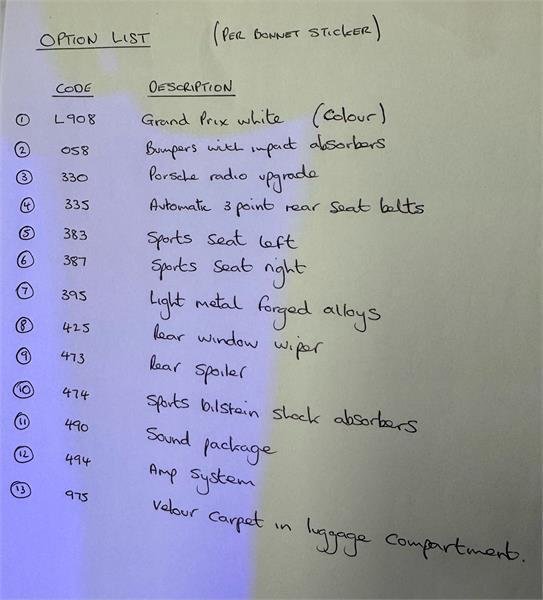 OPTION LIST (PER BONNET STICKER)
CODE DESCRIPTION
1 L908 Grand Prix white (Colour)
2 058 Bumpers with impact absorbers
3 330 Porsche radio upgrade
4 335 Automatic 3 point rear seat belts
5 383 Sports seat left
6 387 Sports seat right
7 395 Light metal forged alloys
8 425 Rear window wiper
9 473 Rear spoiler
10 474 Sports bilstein shock absorbers
11 490 Sound package
12 494 Amp system
13 975 Velour carpet in luggage compartment.